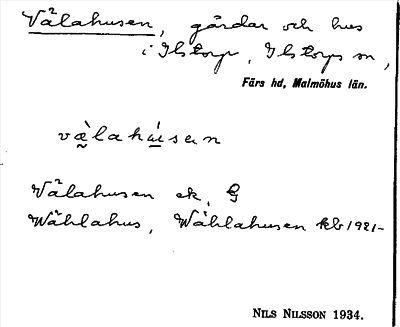 Välahusen, gårdar och hus
i Ilstorp, Ilstorps sn,
Färs hd, Malmöhus län.
Välahusen ek, G
Wählahus, Wählahusen kb 1921-
NILS NILSSON 1934.